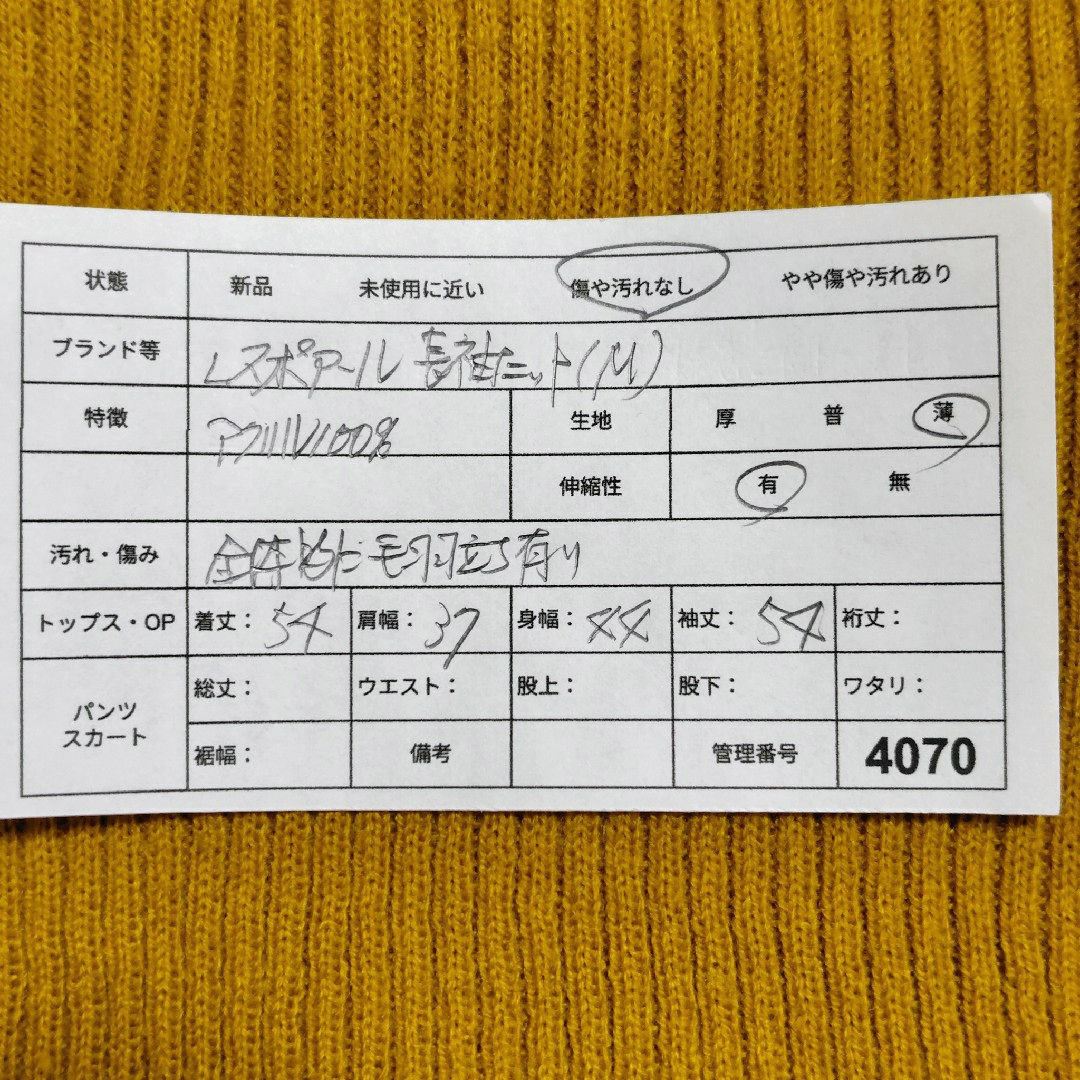 状態 新品 未使用に近い 傷や汚れなし やや傷や汚れあり
ブランド等 レスポアール 長袖ニット(M)
特徴 アクリル100% 生地 厚 普 薄
伸縮性 有 無
汚れ・傷み 全体的に毛羽立ち有り
トップス・OP 着丈: 54 肩幅: 37 身幅: 44 袖丈: 54 裄丈:
パンツ スカート 総丈: ウエスト: 股上: 股下: ワタリ:
裾幅: 備考 管理番号 4070